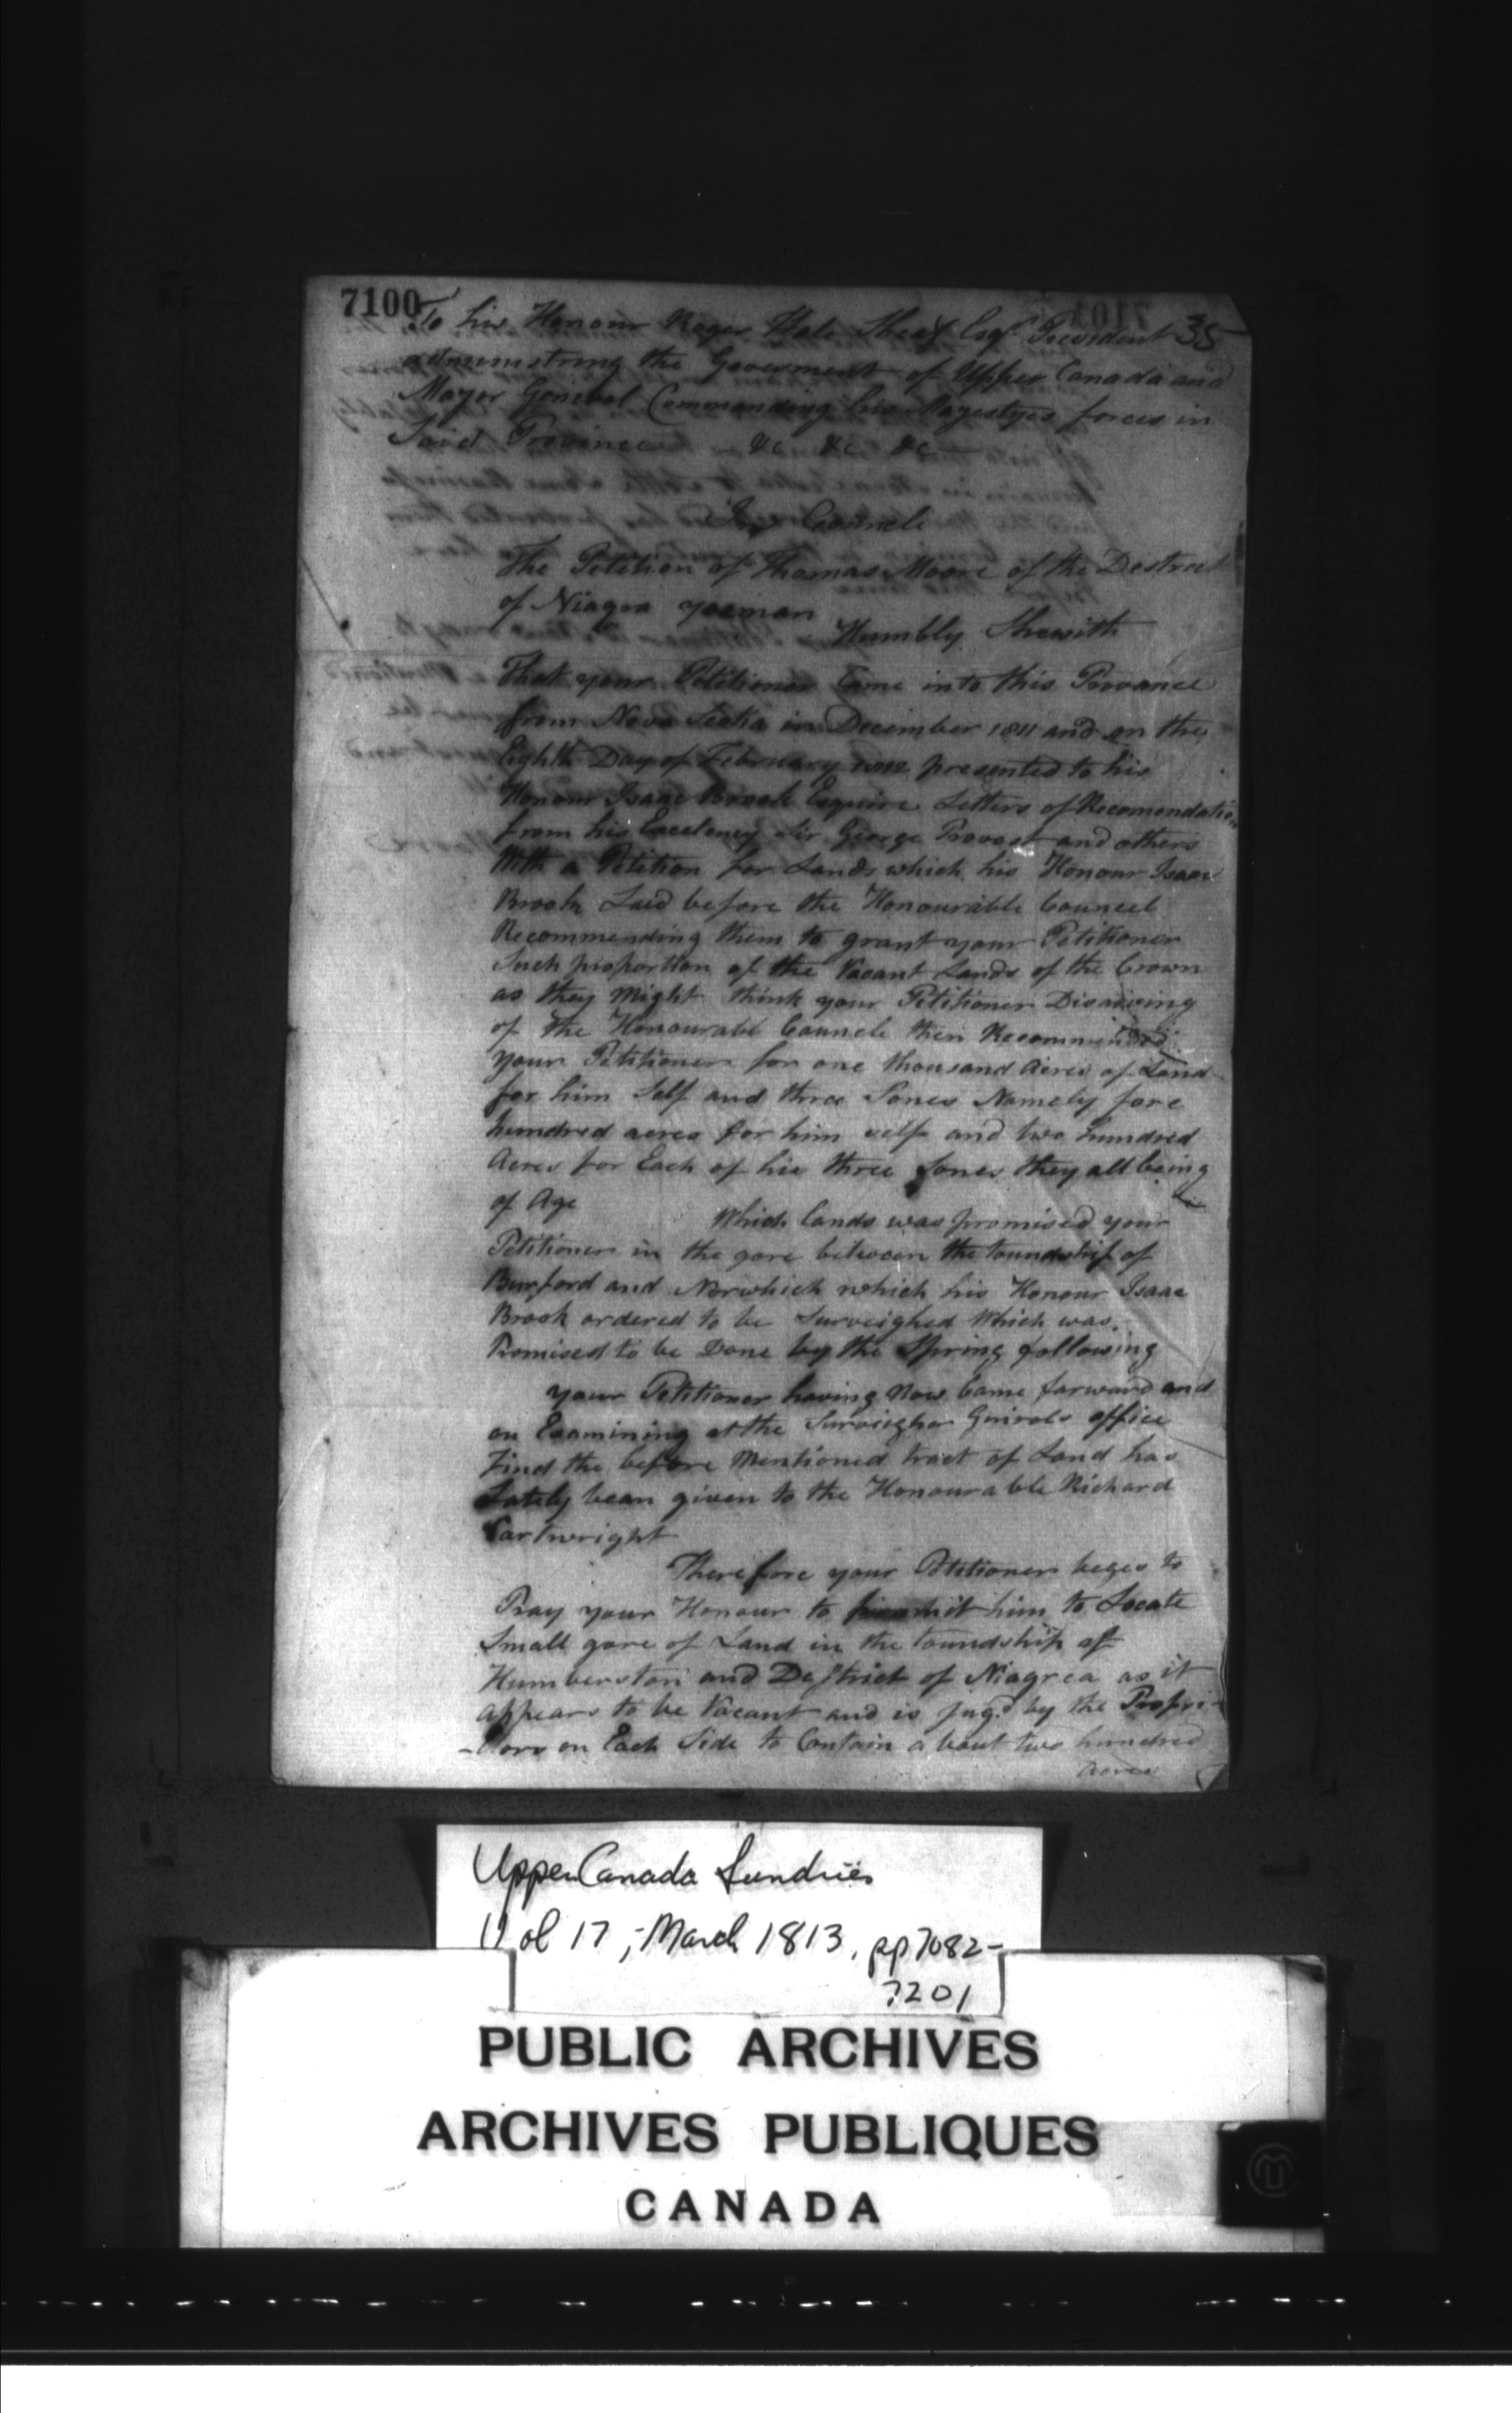 7100
To his Honour Roger Hale Sheaf Esqr. President 35
administring the Goverment of Upper Canada and
Mayor General Commanding his Magestyes forces in
Said Province &c &c &c
In Councle
The Petition of Thomas Moore of the Destrect
of Niagra yoaman
Humbly Shewith
That your Petitioner Came into this Provance
from Nova Scotia in December 1811 and on the
Eighth Day of February 1812 presented to his
Honour Isaac Brook Esquire Letters of Recomendation
from his Excelency Sir George Provost and others
With a Petition for Lands which his Honour Isaac
Brook Laid before the Honourable Councel
Recommending them to grant your Petitioner
Such proportion of the Vacant Lands of the Crown
as they Might think your Petitioner Disarving
of the Honourabl Councle then Recommended
your Petitioner for one thousand Acres of Land
for him Self and three Sones Namely fore
hundred acres for him self and two hundred
Acres for Each of his three Sones they all being
of Age
Which lands was promised your
Petitioner in the gore between the toundship of
Burford and Norwhich which his Honour Isaac
Brook ordered to be Surveighed Which was
Promised to be Done by the Spring following
your Petitioner having Now Came forward and
on Examining at the Surveigher Ginrals office
Find the before Mentioned tract of Land has
Lately bean given to the Honourable Richard
Cartwright
Therefore your Petitioner beges to
Pray your Honour to him to Locate
Small gore of Land in the toundship of
Humberston and Destrict of Niagrea as it
appears to be Vacant and is jugd by the Propri-
-etors on Each Side to Contain about two hundred
acres
Upper Canada Sundries
Vol 17, - March 1813, pp 7082-
7201
PUBLIC ARCHIVES
ARCHIVES PUBLIQUES
CANADA